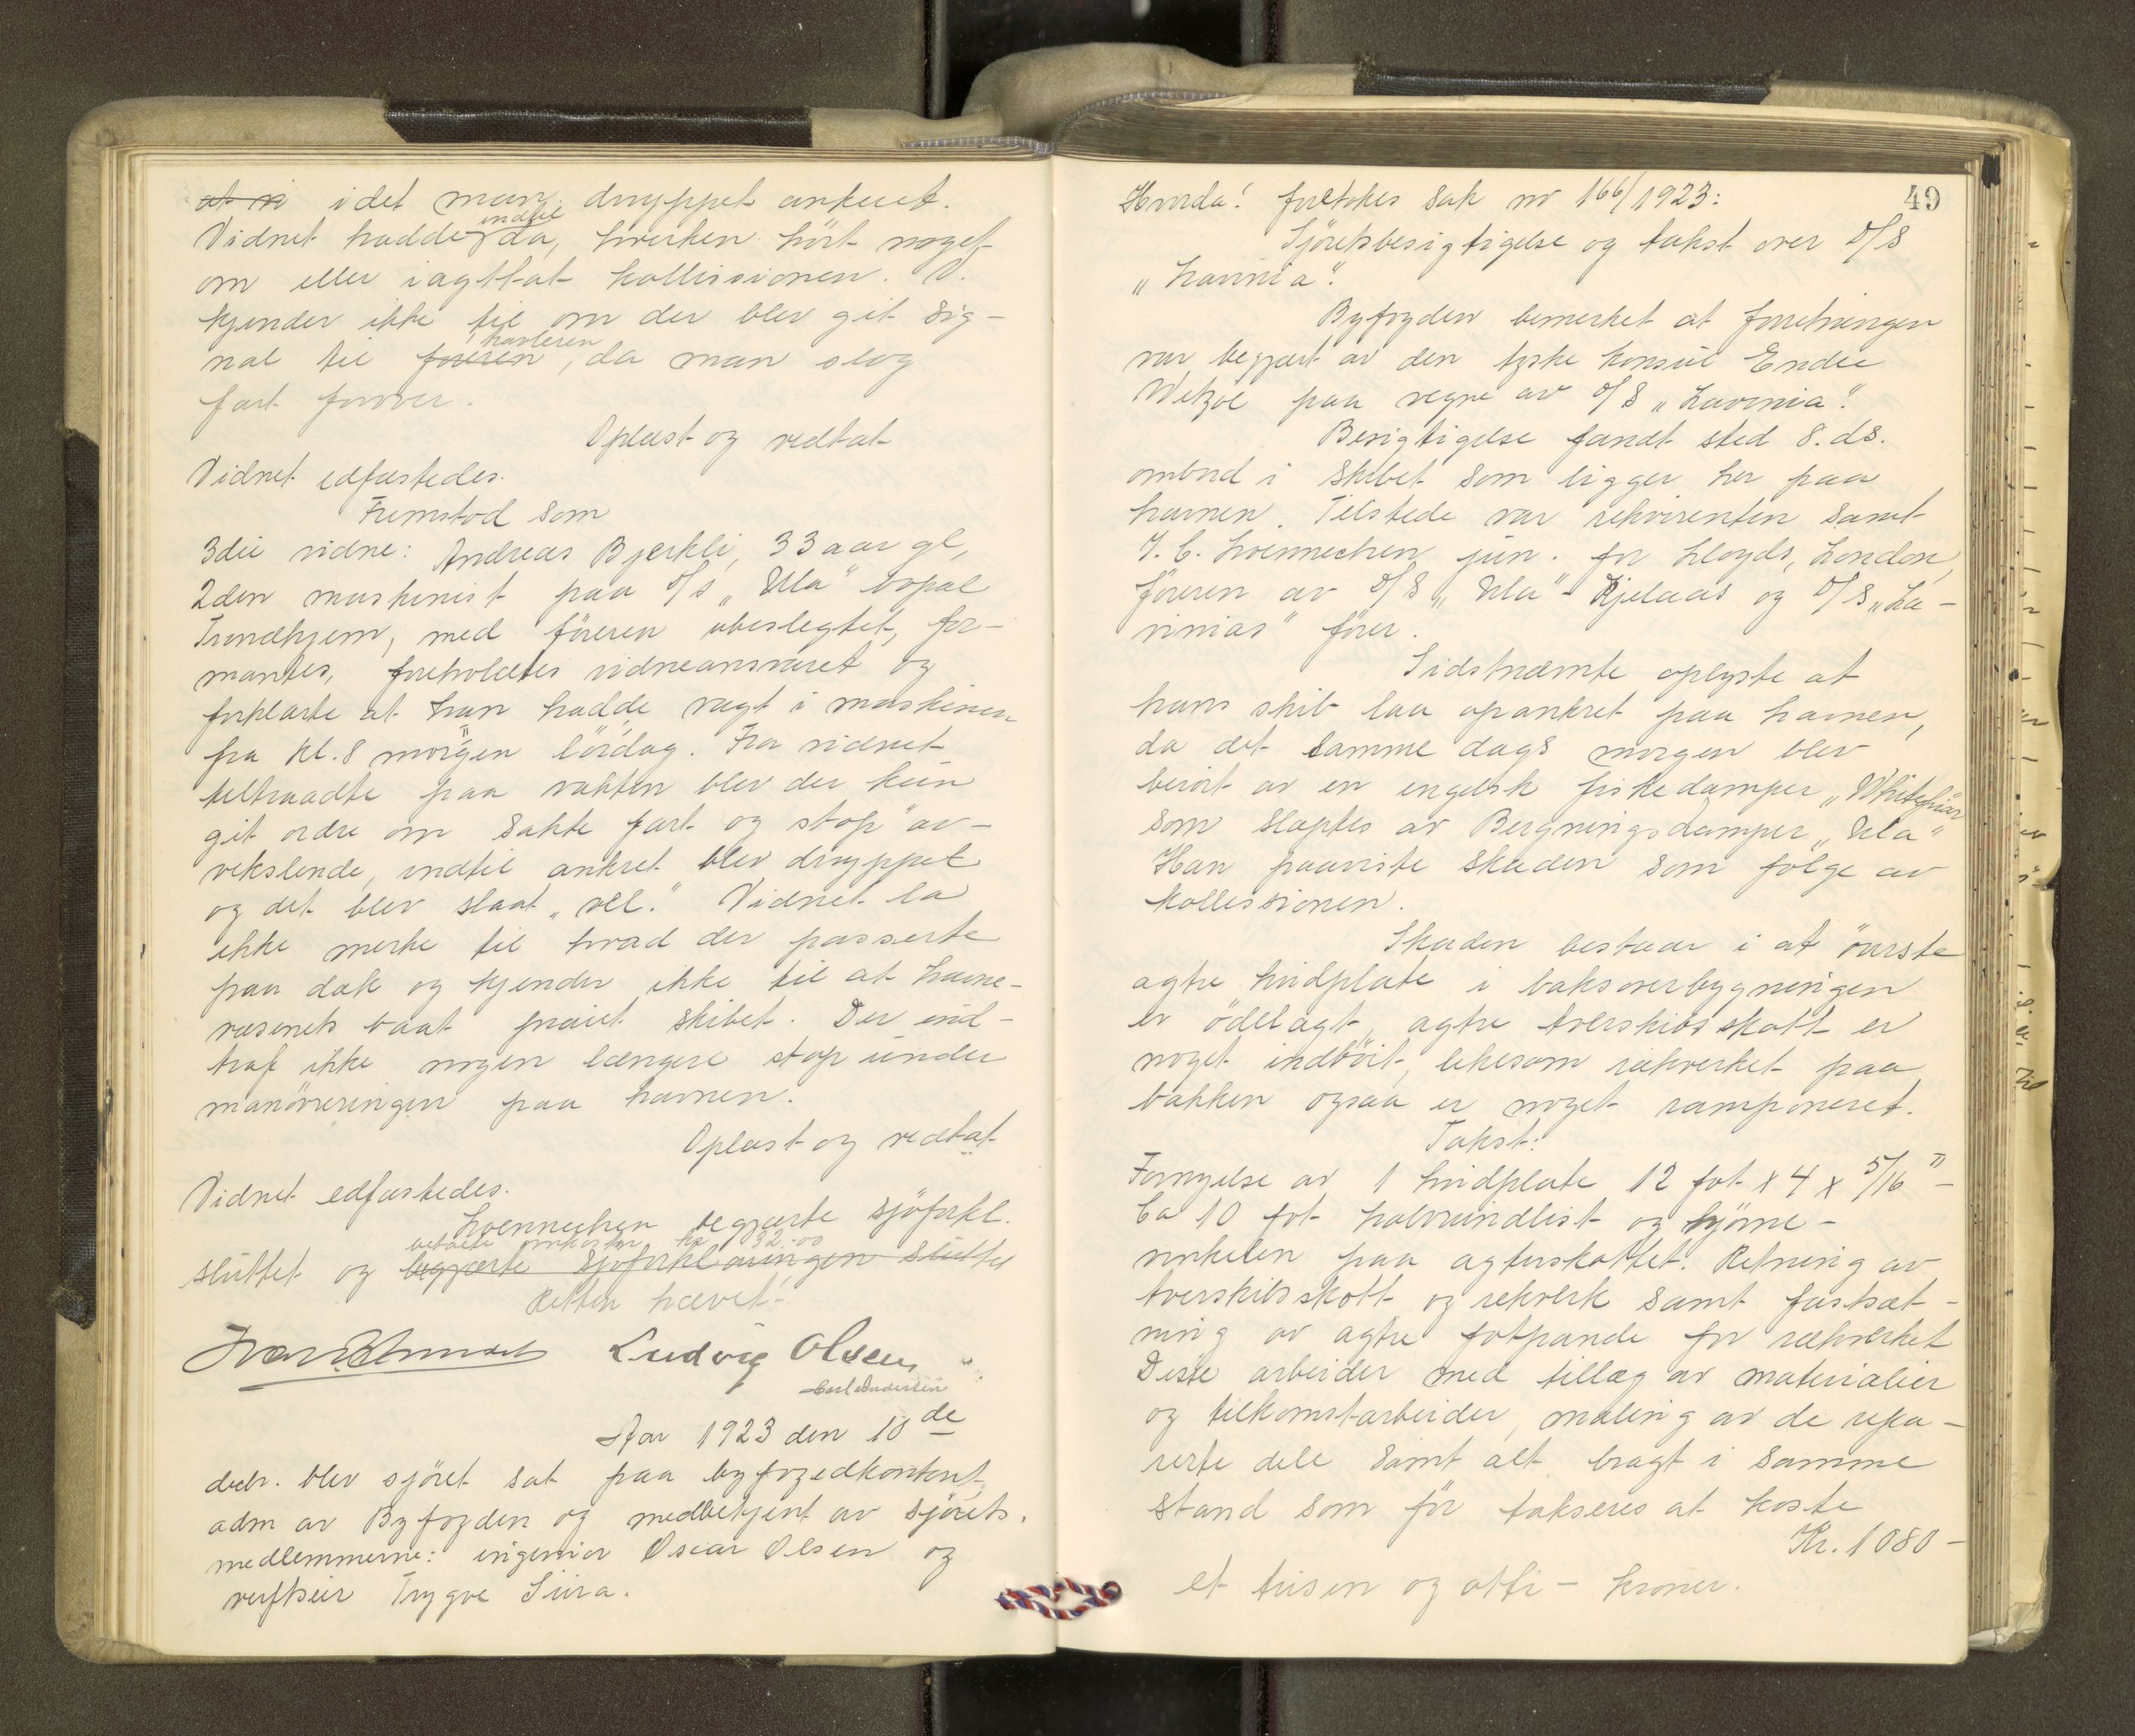 at vi i det man droppet ankeret.
Vidnet hadde indtil da, hverken hört noget
om eller iagttat kollissionen. V.
kjender ikke til om der blev git sig-
nal til föreren traaleren, da man slog
fart forover.
Oplæst og vedtat
Vidnet edfæstedes.
Fremstod som
3die vidne: Andreas Bjerkli, 33 aar gl,
2den maskinist paa D/S "Ula" bopæl
Trondhjem, med föreren ubeslegtet, for-
mantes, foreholdtes vidneansvaret og
forklarte at han hadde vagt i maskinen
fra kl. 8 morgen lördag. Fra vidnet
tiltraadte paa vakten blev der kun
git ordre om "sakte fart og stop" av-
vekslende, indtil ankret blev droppet
og det blev slaat "vel." Vidnet la
ikke merke til hvad der passerte
paa dæk og kjender ikke til at havne-
væsenets baat praiet skibet. Der ind-
traf ikke nogen længere stop under
manövreringen paa havnen.
Oplæst og vedtat
Vidnet edfæstedes.
Loennechen begjærte sjöforkl.
sluttet og betalte omkostn. kr. 32.00 begjærte sjöforklaringen sluttet
Retten hævet!
Ludvig Olsen
Carl Andersen
Aar 1923 den 10de
decbr. blev sjöret sat paa byfogedkontoret,
adm av Byfogden og medbetjent av sjörets.
medlemmerne: ingeniör Oscar Olsen og
verftseier Trygve Siira.
49
Hvorda! foretokes sak nr 166/1923:
Sjöretsbesigtigelse og takst over D/S
"Lavinia".
Byfogden bemerket at forretningen
var begjært av den tyske konsul Endre
Wetzel paa vegne av D/S "Lavinia".
Besigtigelse fandt sted 8. ds.
ombord i skibet som ligger her paa
havnen. Tilstede var rekvirenten samt
J. C. Loennechen jun. for Lloyds, London,
föreren av D/S "Ula" - Kjelaas og D/S "La-
vinias" förer.
Sidstnævnte oplyste at
hans skib laa opankret paa havnen,
da det samme dags morgen blev
berört av en engelsk fiskedamper "Whitefriar"
som slæptes av Bergningsdamper "Ula"
Han paaviste skaden som fölge av
kollissionen.
Skaden bestaar i at överste
agtre hudplate i baksoverbygningen
er ödelagt, agtre tverskibsskott er
noget indböit, likesom rækverket paa
bakken ogsaa er noget ramponeret.
Takst:
Fornyelse av 1 hudplate 12 fot x 4 x 5/16" -
Ca 10 fot halvrundlist og hjörne-
vinkelen paa agterskottet. Retning av
tverskibsskott og rekverk samt fastsæt-
ning av agtre fotpande for rækverket
Disse arbeider med tillæg av materialier
og tilkomstarbeider, maling av de repa-
rerte dele samt alt bragt i samme
stand som för takseres at koste
Kr. 1080 -
et tusen og otti - kroner.